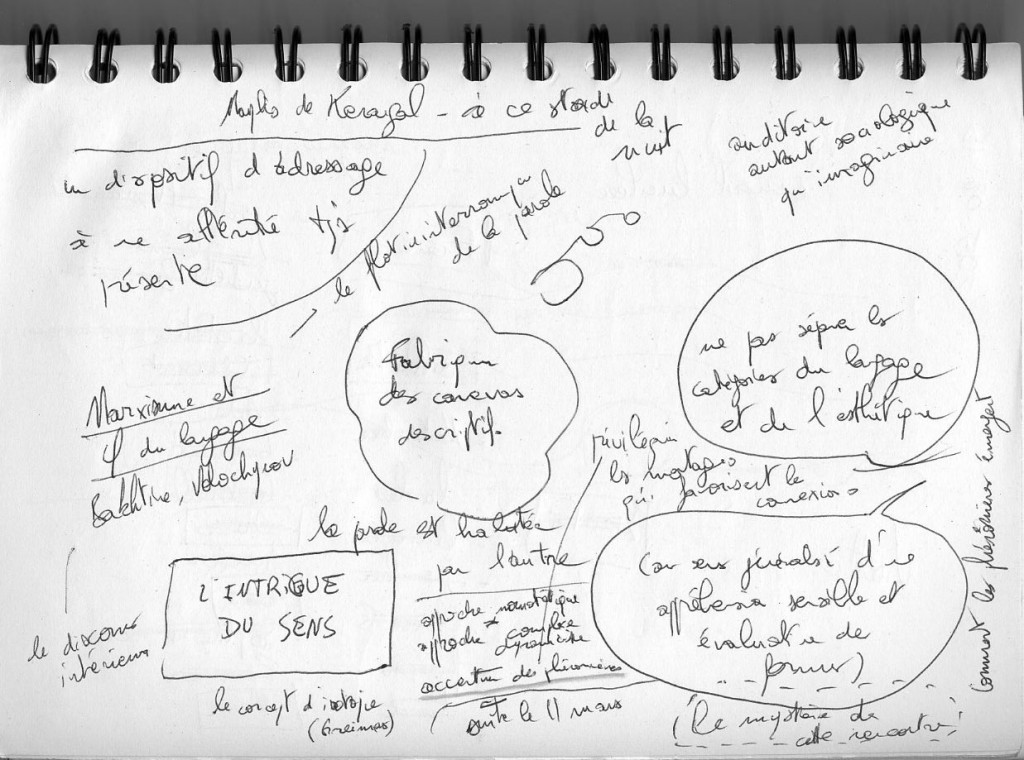 Maylis de Kerangal - à ce stade
de la
nuit
auditoire
autant sociologique
qu'imaginaire
un dispositif d'adressage
à une altérité tjs
présente
le flot ininterrompu
de la parole
Fabrique
des canevas
descriptifs
ne pas séparer les
catégories du langage
et de l'esthétique
Marxisme et
φ du langage
Bakhtine, Volochinov
privilégier
les montages
qui favorisent les
connexions
la parole est habitée
par l'autre
L'INTRIGUE
DU SENS
le discours
intérieur
approche monostatique
≠
approche complexe
dynamiciste
des phénomènes
suite le 11 mars
le concept d'isotopie
(Greimas)
(au sens généralisé d'une
appréhension sensible et
évaluative de
formes)
(le mystère de
cette rencontre)
comment les phénomènes émergent